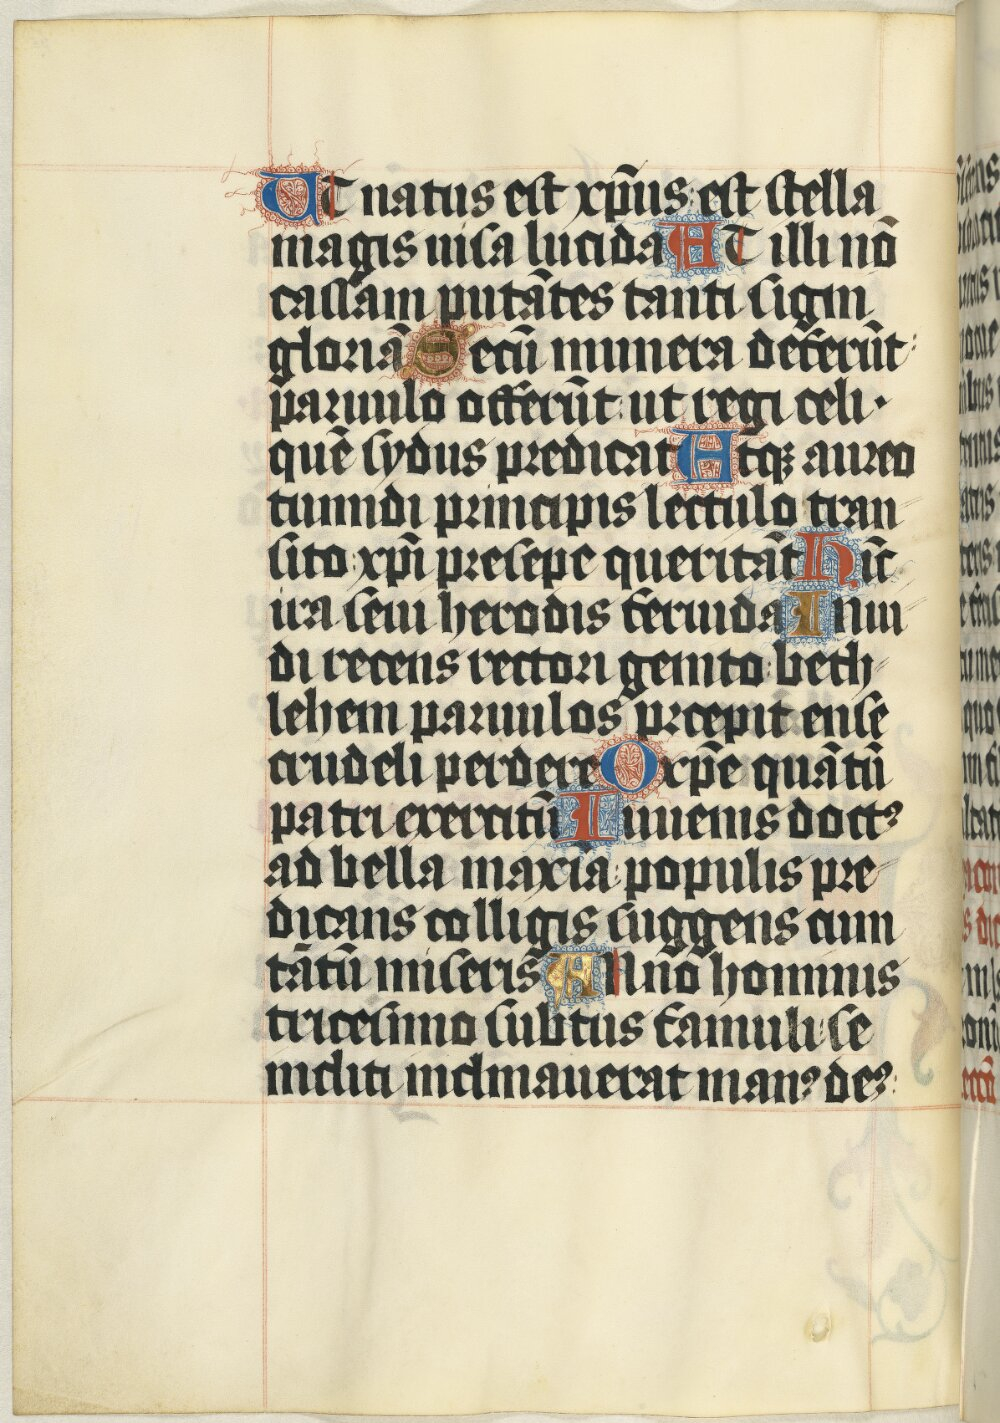 UT natus est xp̄us: est stella
magis uisa lucida UT illi nō
cassam putātes tanti signi
gloriā Secū munera deferūt:
paruulo offerūt: ut regi celi·
quē sydus predicat Atqꝫ aureo
tumidi principis lectulo tran
sito: xp̄i presepe queritāt Hic̄
ira seui herodis feruida Inui
di recens rectori genito: beth
lehem paruulos p̄rcepit ense
crudeli perdere O xp̄e quātū
patri exercitū Iuuenis doctꝰ
ad bella maxīa: populis pre
dicans colligis suggens cum
tātū miseris ANnō hominis
tricesimo subtus famuli se
incliti inclinauerat manꝰ deꝰ: